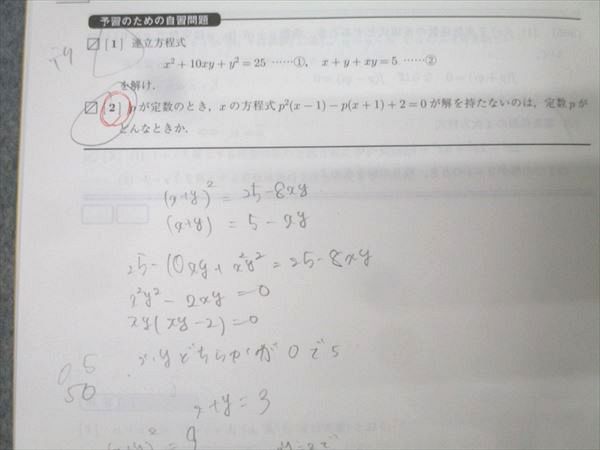 予習のための自習問題
[1] 連立方程式
x²+10xy+y²=25 ……①, x+y+xy=5 ……②
を解け.
[2] pが定数のとき, xの方程式p²(x−1)−p(x+1)+2=0が解を持たないのは, 定数pが
どんなときか.
(x+y)² = 25-8xy
(x+y) = 5-xy
25-10xy+x²y² = 25-8xy
x²y²-2xy=0
xy(xy-2)=0
x,yどちらかが0で5
0 5
50
x+y=3
(x+y)² = 9